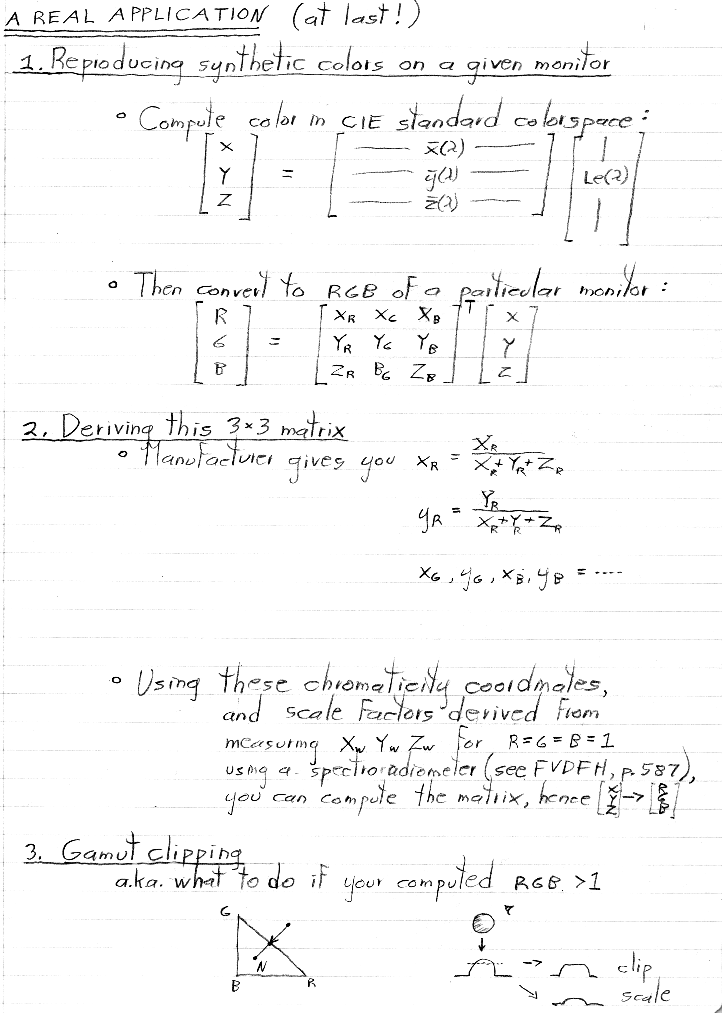 A REAL APPLICATION (at last!)
1. Reproducing synthetic colors on a given monitor
• Compute color in CIE standard colorspace:
[X Y Z] = [x̄(λ) ȳ(λ) z̄(λ)] [Le(λ)]
• Then convert to RGB of a particular monitor:
[R G B] = [X_R X_G X_B
Y_R Y_G Y_B
Z_R B_G Z_B]^T [X Y Z]
2. Deriving this 3×3 matrix
• Manufacturer gives you x_R = X_R / (X_R + Y_R + Z_R)
y_R = Y_R / (X_R + Y_R + Z_R)
x_G, y_G, x_B, y_B = ....
• Using these chromaticity coordinates,
and scale factors derived from
measuring X_w Y_w Z_w for R=G=B=1
using a spectroradiometer (see FVDFH, p. 587),
you can compute the matrix, hence [X Y Z] → [R G B]
3. Gamut clipping
a.k.a. what to do if your computed RGB >1
G
N
B R
→ clip
scale